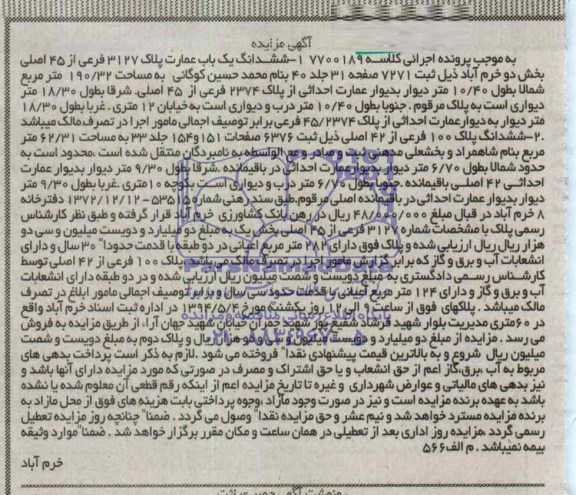 آگهی مزایده
به موجب پرونده اجرائی کلاسه ۷۷۰۰۱۸۹ ۱-ششدانگ یک باب عمارت پلاک ۳۱۲۷ فرعی از ۴۵ اصلی
بخش دو خرم آباد ذیل ثبت ۷۲۷۱ صفحه ۳۱ جلد ۴۰ بنام محمد حسین کوگانی به مساحت ۱۹۰/۳۲ متر مربع
شمالا بطول ۱۰/۴۰ متر دیوار بدیوار عمارت احداثی از پلاک ۲۳۷۴ فرعی از ۴۵ اصلی. شرقا بطول ۱۸/۳۰ متر
دیواری است به پلاک مرقوم. جنوبا بطول ۱۰/۴۰ متر درب و دیواری است به خیابان ۱۲ متری. غربا بطول ۱۸/۳۰
متر دیوار به دیوار عمارت احداثی از پلاک ۴۵/۲۳۷۴ فرعی برابر توصیف اجمالی مامور اجرا در تصرف مالک میباشد
۲۰-ششدانگ پلاک ۱۰۰ فرعی از ۴۲ اصلی ذیل ثبت ۶۳۷۶ صفحات ۱۵۱ و ۱۵۴ جلد ۳۳ به مساحت ۶۲/۳۱ متر
مربع بنام شاهمراد و بخشعلی مع الواسطه به نامبردگان منتقل شده است، محدود است به
حدود شمالا بطول ۶/۷۰ متر دیوار بدیوار عمارت احداثی در باقیمانده. شرقا بطول ۹/۳۰ متر دیوار بدیوار عمارت
احداثی ۴۲ اصلی باقیمانده. جنوبا بطول ۶/۷۰ متر درب و دیواری است به کوچه ۱۰ متری. غربا بطول ۹/۳۰ متر
دیوار بدیوار عمارت احداثی در باقیمانده اصلی مرقوم. طبق سند رهنی شماره ۵۳۵۱۵-۱۳۷۲/۱۲/۱۲ دفترخانه
۸ خرم آباد در قبال مبلغ ۴۸/۵۰۰/۰۰۰ ریال در رهن بانک کشاورزی خرم آباد قرار گرفته و طبق نظر کارشناس
رسمی پلاک با مشخصات شماره ۳۱۲۷ فرعی از ۴۵ اصلی بخش یک به مبلغ دو میلیارد و دویست میلیون و سی دو
هزار ریال ارزیابی شده و پلاک فوق دارای ۲۸۲ متر مربع اعیانی در دو طبقه با قدمت حدودا" ۳۰ سال و دارای
انشعابات آب و برق و گاز که برابر گزارش مامور اجرا در تصرف مالک می باشد. پلاک ۱۰۰ فرعی از ۴۲ اصلی توسط
کارشناس رسمی دادگستری به مبلغ دویست و شصت میلیون ریال ارزیابی شده و در دو طبقه دارای انشعابات
آب و برق و گاز و دارای ۱۲۴ متر مربع اعیانی با قدمت حدود سی سال و برابر توصیف اجمالی مامور ابلاغ در تصرف
مالک میباشد. پلاکهای فوق از ساعت ۹ الی ۱۲ روز یکشنبه مورخ ۱۳۹۴/۵/۴ در اداره ثبت اسناد خرم آباد واقع
در ۶۰ متری مدیریت بلوار شهید فرشاد شفیع پور شهید چمران خیابان شهید جهان آرا، از طریق مزایده به فروش
می رسد. مزایده از مبلغ دو میلیارد و دویست میلیون و ریال و پلاک دوم به مبلغ دویست و شصت
میلیون ریال شروع و به بالاترین قیمت پیشنهادی نقدا" فروخته می شود. لازم به ذکر است پرداخت بدهی های
مربوط به آب، برق، گاز اعم از حق انشعاب و یا حق اشتراک و مصرف در صورتی که مورد مزایده دارای آنها باشد و
نیز بدهی های مالیاتی و عوارض شهرداری و غیره تا تاریخ مزایده اعم از اینکه رقم قطعی آن معلوم شده یا نشده
باشد به عهده برنده مزایده است و نیز در صورت وجود مازاد، وجوه پرداختی بابت هزینه های فوق از محل مازاد به
برنده مزایده مسترد خواهد شد و نیم عشر و حق مزایده نقدا" وصول می گردد. ضمنا" چنانچه روز مزایده تعطیل
رسمی گردد، مزایده روز اداری بعد از تعطیلی در همان ساعت و مکان مقرر برگزار خواهد شد. ضمنا" موارد وثیقه
بیمه نمیباشد. م الف ۵۶۶
خرم آباد
ParsNamadData
پایگاه اطلاع رسانی
۰۲۱-۸۸۳۴۹۶۷۰-۵